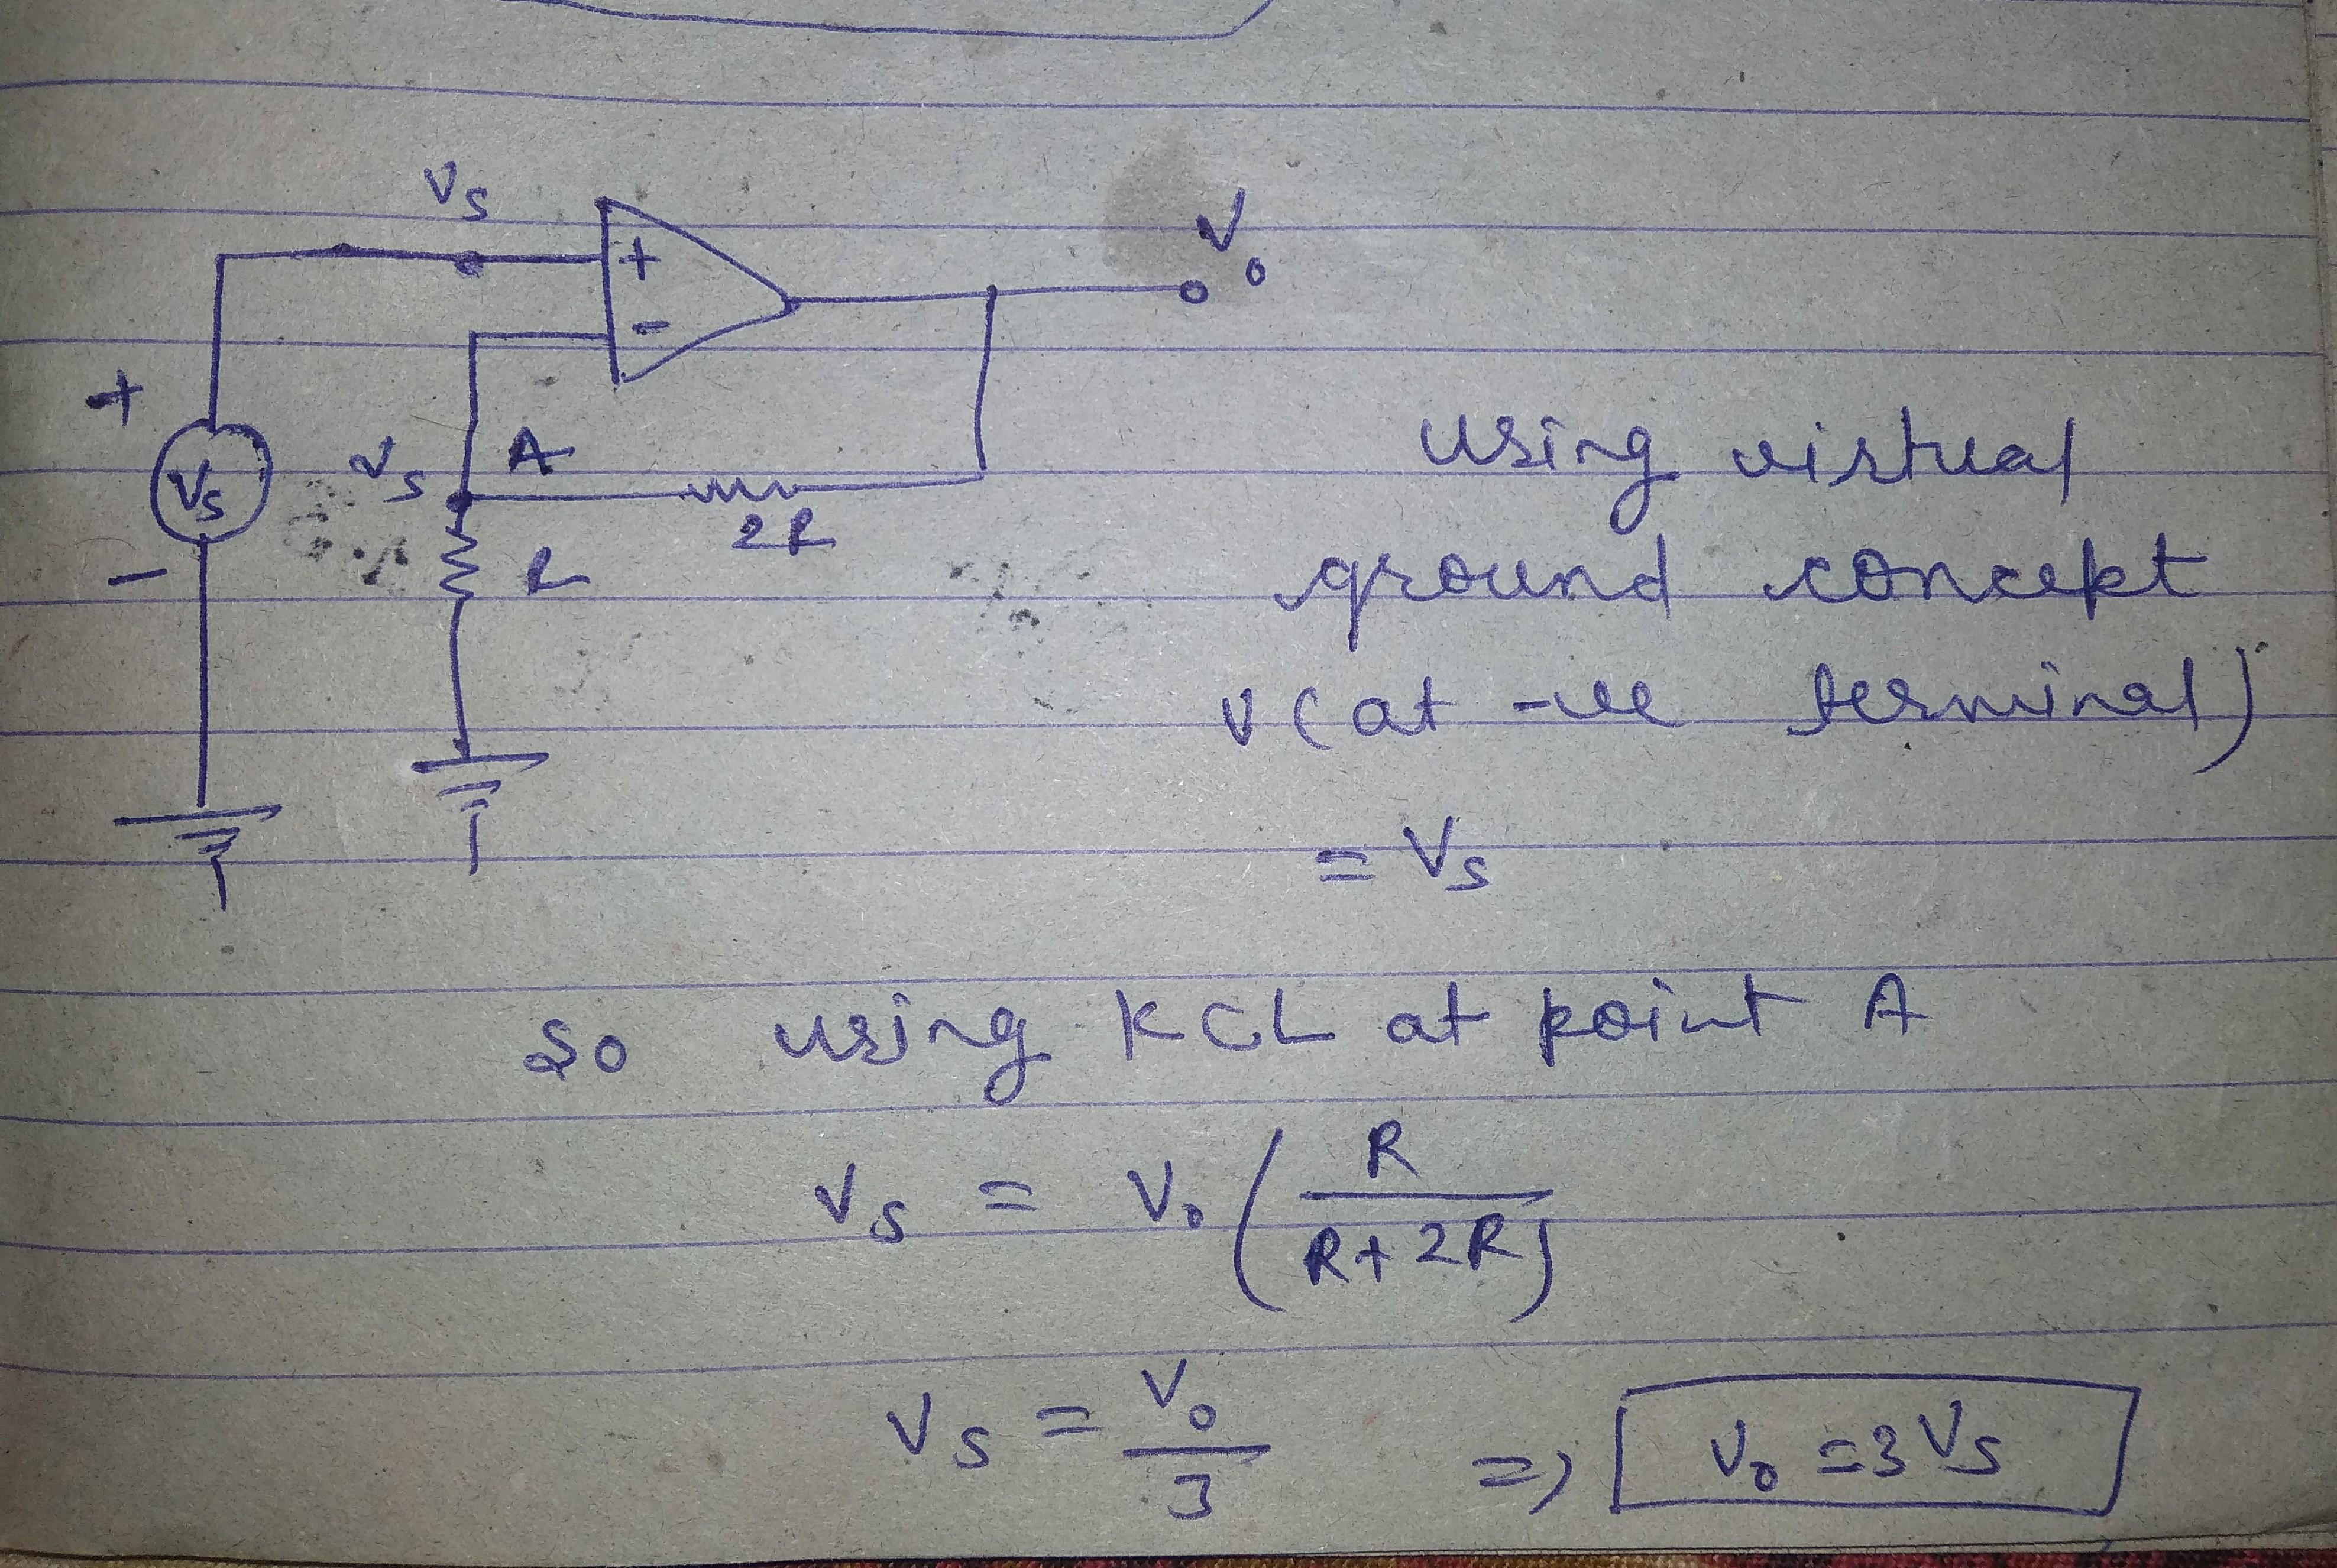 Vs
+
-
Vo
+
Vs
-
Vs A
2R
R
using virtual
ground concept
V (at -ve terminal)
= Vs
So using KCL at point A
Vs = Vo (R / R+2R)
Vs = Vo / 3 => Vo = 3Vs